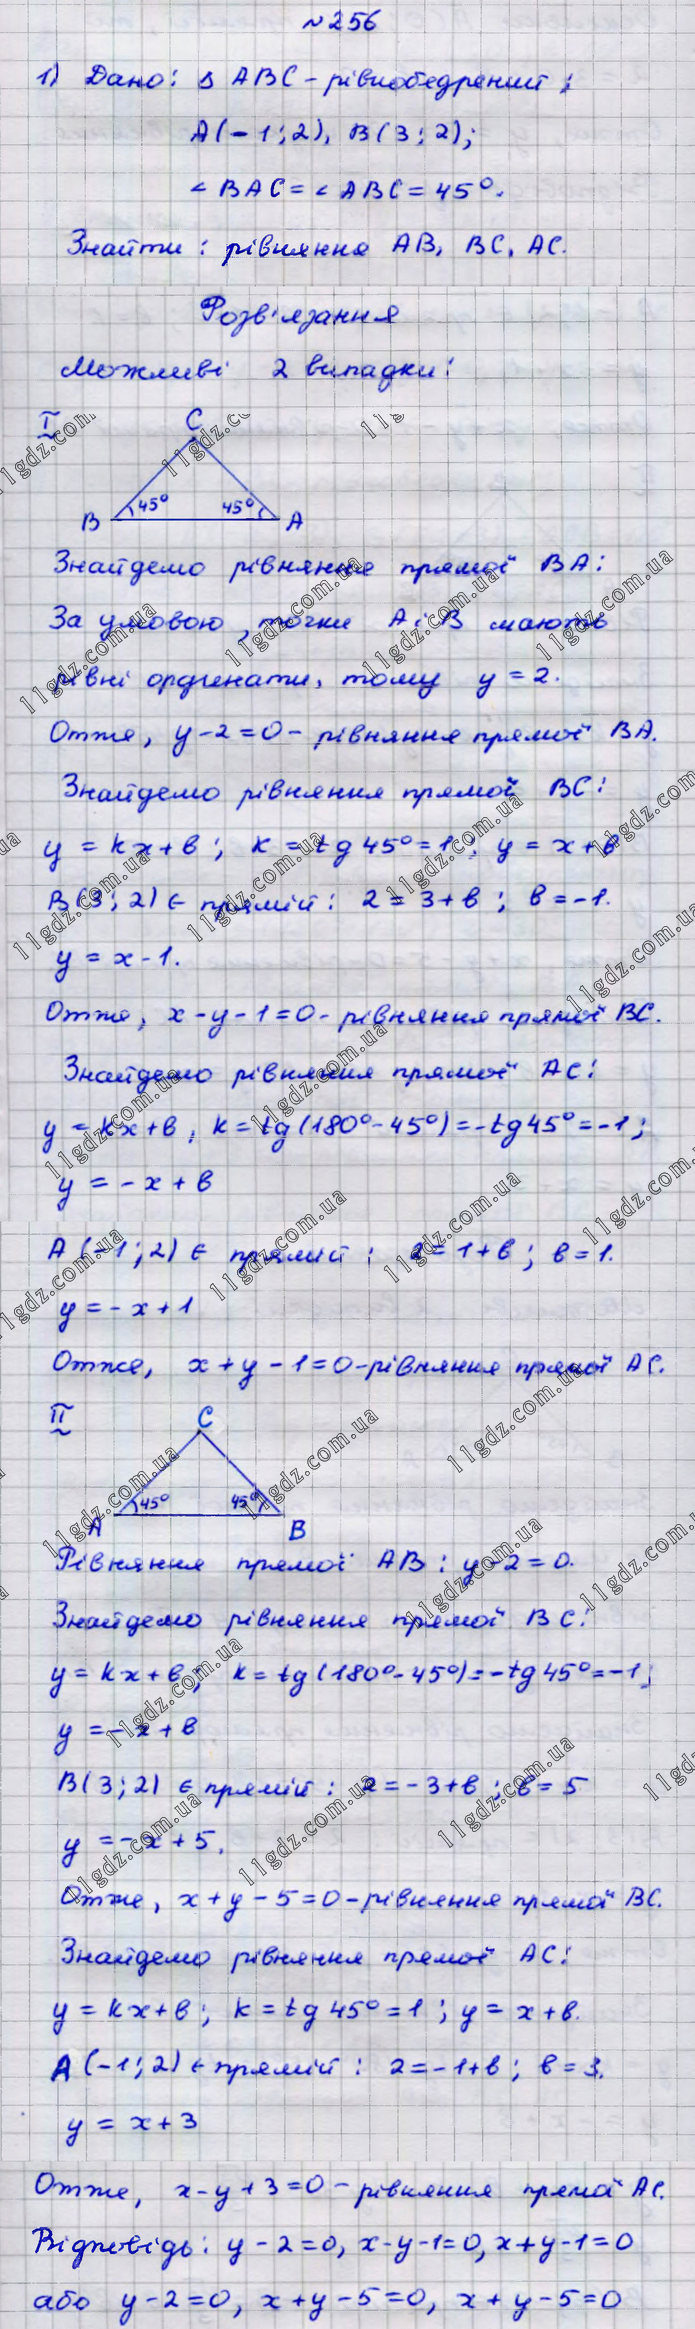 №256
1) Дано: Δ ABC - рівнобедрений;
A(-1;2), B(3;2);
∠BAC=∠ABC=45°.
Знайти: рівняння AB, BC, AC.
Розв'язання
Можливі 2 випадки:
I
C
B 45° 45° A
Знайдемо рівняння прямої BA:
За умовою, точки A і B мають
рівні ординати, тому y=2.
Отже, y-2=0- рівняння прямої BA.
Знайдемо рівняння прямої BC:
y=kx+b; k=tg45°=1; y=x+b
B(3;2)∈ прямій: 2=3+b; b=-1.
y=x-1.
Отже, x-y-1=0- рівняння прямої BC.
Знайдемо рівняння прямої AC:
y=kx+b; k=tg(180°-45°)=-tg45°=-1;
y=-x+b
A(-1;2)∈ прямій: 2=1+b; b=1.
y=-x+1
Отже, x+y-1=0-рівняння прямої AC.
II
C
A 45° 45° B
Рівняння прямої AB: y-2=0.
Знайдемо рівняння прямої BC:
y=kx+b; k=tg(180°-45°)=-tg45°=-1;
y=-x+b
B(3;2)∈ прямій: 2=-3+b; b=5
y=-x+5.
Отже, x+y-5=0-рівняння прямої BC.
Знайдемо рівняння прямої AC:
y=kx+b; k=tg45°=1; y=x+b.
A(-1;2)∈ прямій: 2=-1+b; b=3.
y=x+3
Отже, x-y+3=0- рівняння прямої AC.
Відповідь: y-2=0, x-y-1=0, x+y-1=0
або y-2=0, x+y-5=0, x+y-5=0
11gdz.com.ua